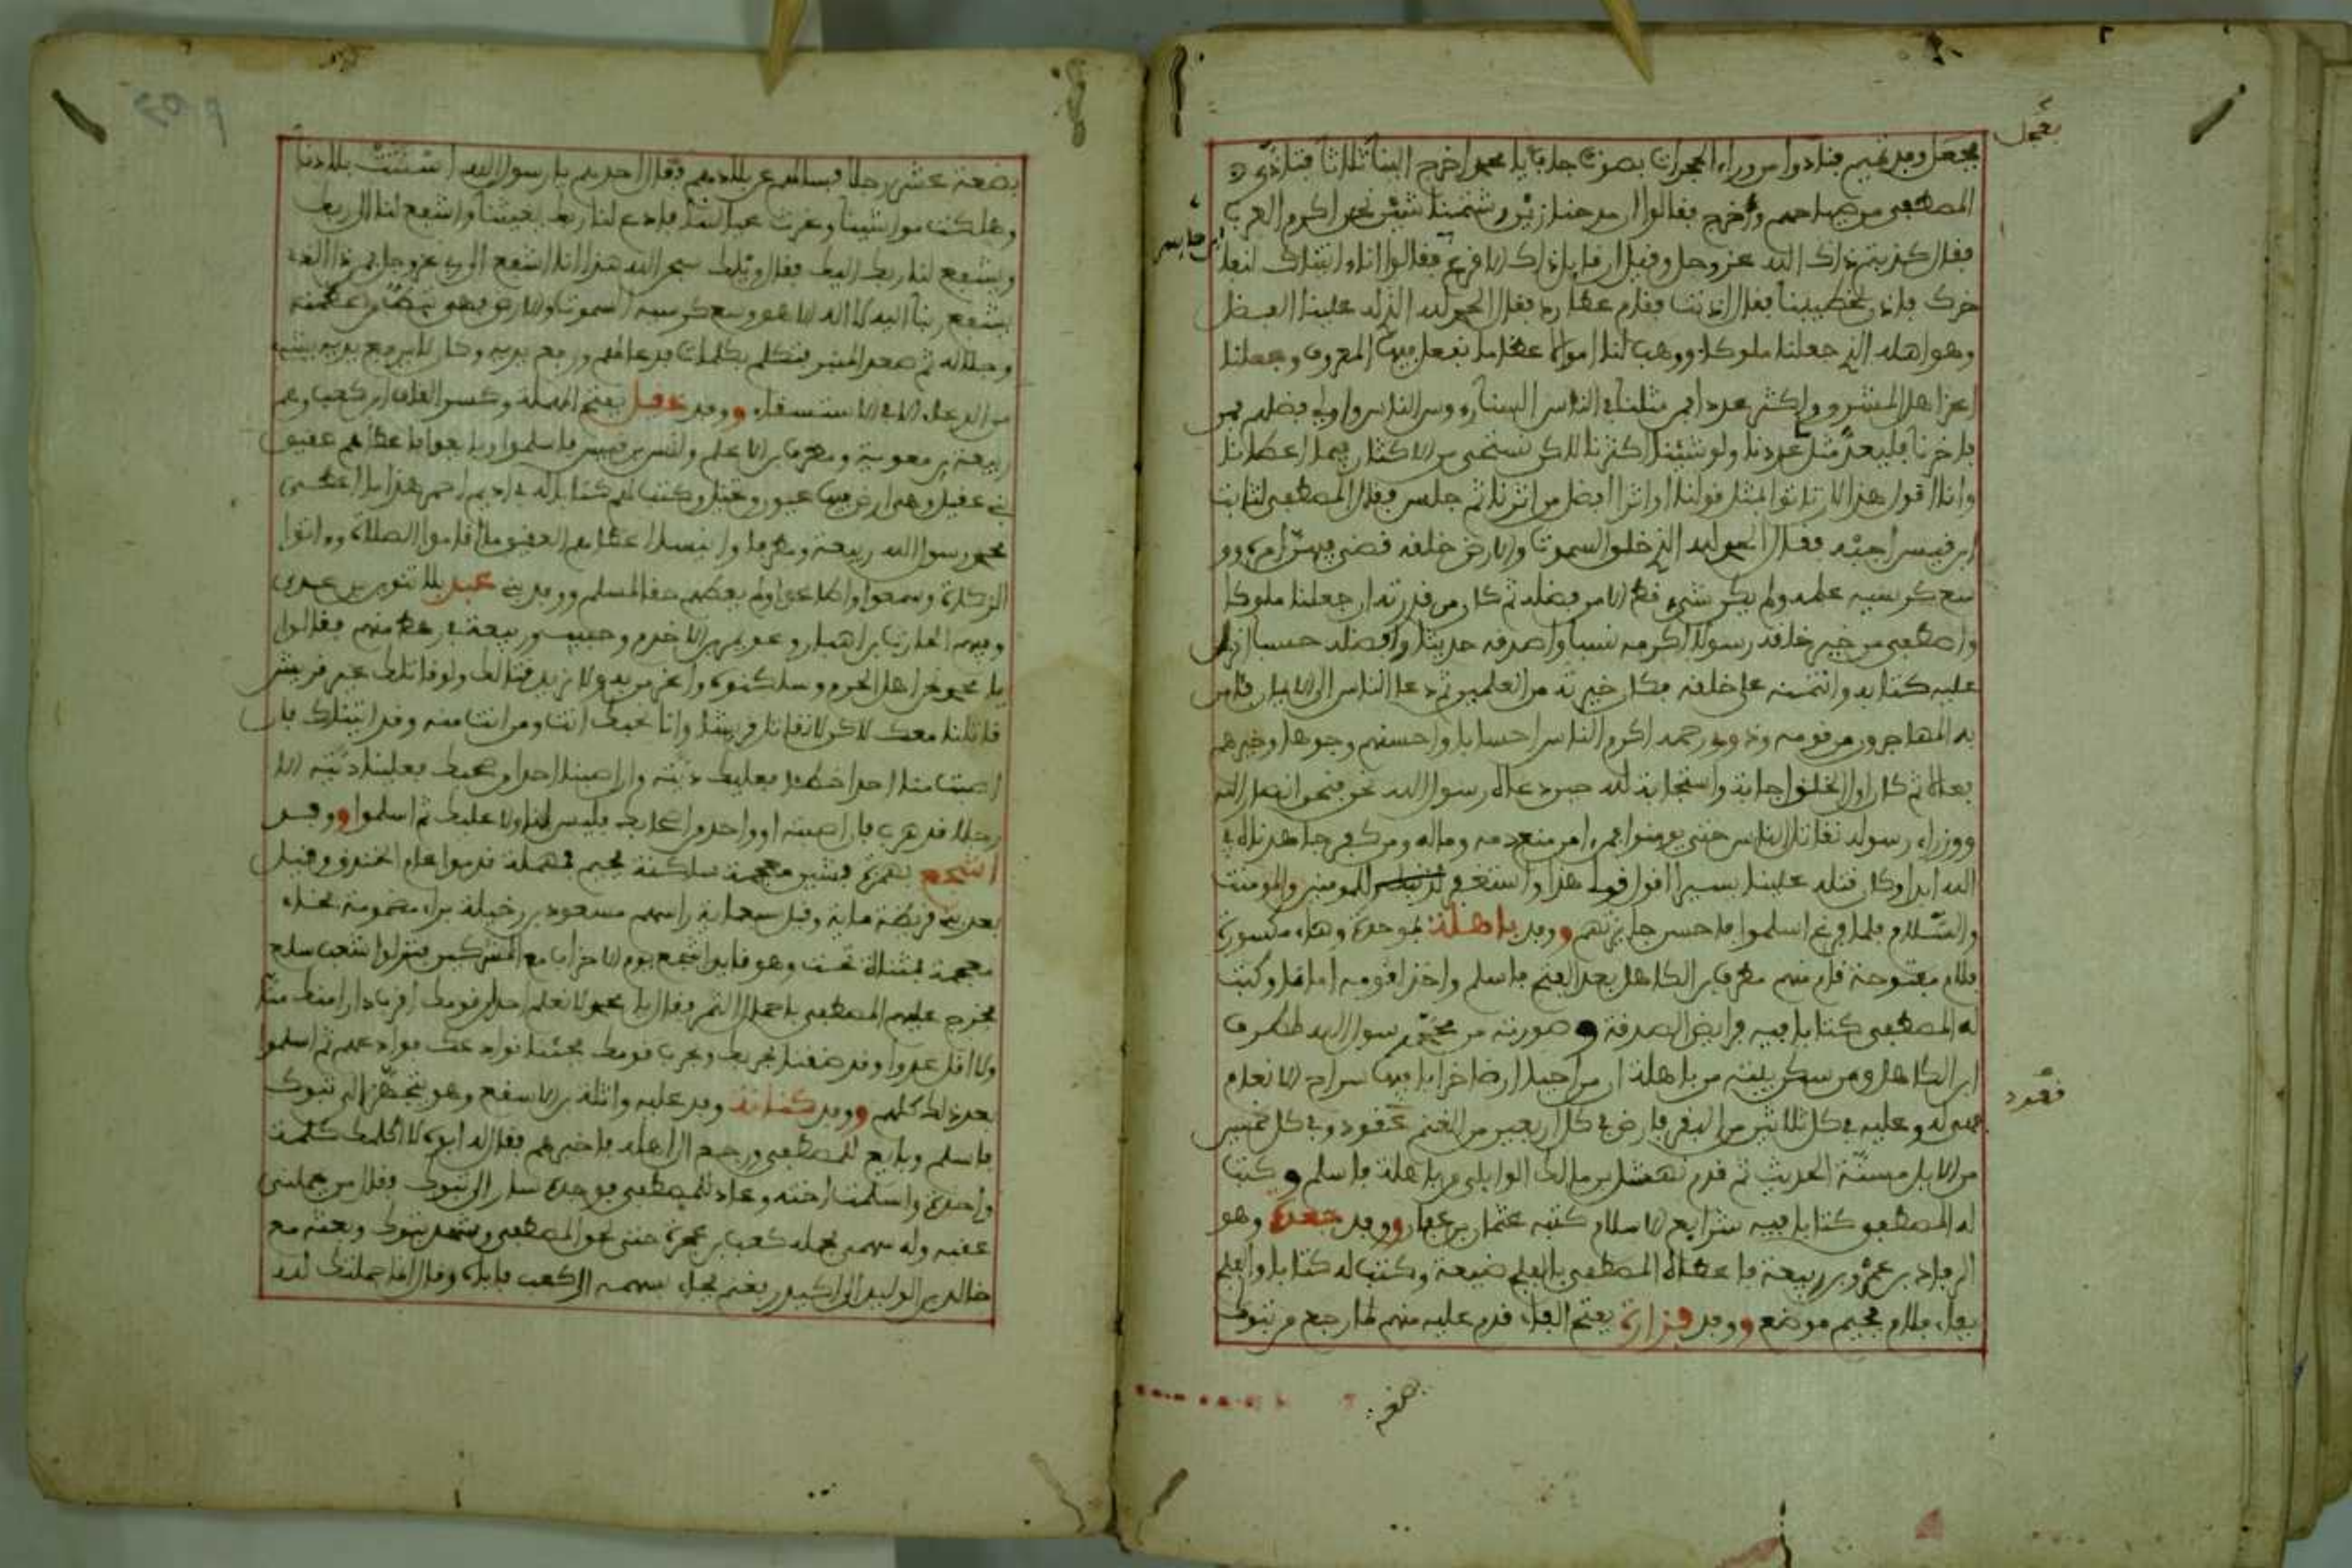 يعجل وفد تميم فنادوا من وراء الحجرات بصوت جاف يا محمد اخرج الينا ثلاثا فتاذى
المصطفى من صياحهم وخرج فقالوا ان مدحنا زين وشتمنا شين نحن اكرم العرب
فقال كذبتم ذاك الله عز وجل وقيل ان قايل ذاك الاقرع فقالوا انا اتيناك لنفا
خرك فاذن لخطيبنا فقال اذنت فقام عطارد فقال الحمد لله الذي له علينا الفضل
وهو اهله الذي جعلنا ملوكا ووهب لنا اموالا عظاما نفعل فيها المعروف وجعلنا
اعز اهل المشرق واكثر عددا فمن مثلنا في الناس السنا رووس الناس واولي فضلهم فمن
فاخرنا فليعد مثل عددنا ولو شئنا اكثرنا لاكن نستحي من الاكثار فيما اعطانا
وانا اقول هذا لان تاتوا بمثل قولنا او امر افضل من امرنا ثم جلس فقال المصطفى لثابت
ابن قيس اجبه فقال الحمد لله الذي خلق السموت والارض خلقه قضى فيهن امره وو
سع كرسيه علمه ولم يكن شيء قط الا من فضله ثم كان من قدرته ان جعلنا ملوكا
واصطفى من خير خلقه رسولا اكرمه نسبا واصدقه حديثا وافضله حسبا انزل
عليه كتابه وائتمنه على خلقه فكان خيرته من العلمين ثم دعا الناس الى الايمان فامن
به المهاجرون من قومه وذوي رحمه اكرم الناس احسابا واحسنهم وجوها وخيرهم
فعالا ثم كان اول الخلق اجابة واستجابة لله حين دعاه رسول الله نحن فنحن انصار الله
ووزراء رسوله نقاتل الناس حتى يومنوا فمن امن منع دمه وماله ومن كفر جاهدناه في
الله ابدا وكان قتله علينا يسيرا اقول قولي هذا واستغفر للمومنين والمومنت
والسلام فلما فرغ اسلموا فاحسن جايزتهم ووفد باهلة بموحدة وهاء مكسورة
فلام مفتوحة قدم منهم مطرف بن الكاهل بعد الفتح فاسلم واخذ لقومه امانا وكتب
له المصطفى كتابا فيه فرايض الصدقة وصورته من محمد رسول الله لمطرف
ابن الكاهل ومن سكن بيشه من باهلة ان من احيا ارضا خرابا فيها مراح الانعام
فهي له وعليه في كل ثلاثين من البقر فارض في كل اربعين من الغنم عقود وفي كل خمسين
من الابل مسنة الحديث ثم قدم نهشل بن مالك الوايلي من باهلة فاسلم وكتب
له المصطفى كتابا فيه شرايع الاسلام كتبه عثمان بن عفان ووفد جعدة وهو
الرقاد بن عمرو بن ربيعة فاعطاه المصطفى بالفلج ضيعة وكتب له كتابا والفلج
بفاء فلام فجيم موضع ووفد فزارة بفتح الفاء قدم عليه منهم لما رجع من تبوك
يعجل
ابن حابس
عقود
بضعة
بضعة عشر رجلا فسالهم عن بلادهم فقال احدهم يا رسول الله اسنتت بلادنا
وهلكت مواشينا وغرث عيالنا فادع لنا ربك يغيثنا واشفع لنا الى ربك
ويشفع لنا ربك اليك فقال ويلك سبحن الله هذا انا اشفع الى ربي عز وجل فمن ذا الذي
يشفع ربنا اليه لا اله الا هو وسع كرسيه السموت والارض فهي تئط من عظمته
وجلاله ثم صعد المنبر فتكلم بكلمات فدعا لهم ورفع يديه وكان لا يرفع يديه بشيء
من الدعاء الا في الاستسقاء ووفد عقيل بفتح المهملة وكسر القاف ابن كعب وهم
ربيعة بن معوية ومطرف بن الاعلم وانس بن قيس فاسلموا وبايعوا فاعطاهم عقيق
بني عقيل وهي ارض فيها عيون ونخل وكتب لهم كتابا له في اديم احمر هذا ما اعطى
محمد رسول الله ربيعة ومطرفا وانيسا اعطاهم العقيق ما اقاموا الصلاة وءاتوا
الزكاة وسمعوا واطاعوا ولم يعطهم حقا لمسلم ووفد بني عبد بلا تنوين بن عدي
وفيهم الحارث بن اهبان وعويمر بن الاخرم وحبيب وربيعة في رهط منهم فقالوا
يا محمد نحن اهل الحرم وساكنوه واعز من به ولا نريد قتالك ولو قاتلك غير قريش
قاتلنا معك لاكن لا نقاتل قريشا وانا نحبك انت ومن انت منه وقد اتيناك فان
اصبت منا احدا خطئا فعليك ديته وان اصبنا احدا من اصحابك فعلينا ديته الا
رجلا قد هرب فان اصبته او واحد من اصحابك فليس لنا ولا عليك ثم اسلموا ووفد
اشجع بهمزة فشين معجمة ساكنة فجيم فمهملة قدموا عام الخندق وقيل
بعد بني قريظة ماية وقيل سبعماية راسهم مسعود بن رخيلة براء مضمومة فخاء
معجمة فمثناة تحت وهو قايد اشجع يوم الاحزاب مع المشركين فنزلوا شعب سلع
فخرج عليهم المصطفى باحمال التمر فقال يا محمد لا نعلم احدا من قومك اقرب دارا منك منا
ولا اقل عددا وقد ضقنا بحربك وبحرب قومك فجئنا نوادعك فوادعهم ثم اسلموا
بعد ذلك كلهم ووفد كنانة وفد عليه واثلة بن الاسقع وهو يتجهز الى تبوك
فاسلم وبايع للمصطفى ورجع الى اهله فاخبرهم فقال له ابوه لا اكلمك كلمة
واحدة واسلمت اخته وعاد للمصطفى فوجده سار الى تبوك فقال من يحملني
عقبه وله سهمي فحمله كعب بن عجرة حتى لحق المصطفى وشهد تبوك وبعثه مع
خالد بن الوليد الى اكيدر بغنم فجاء بسهمه الى كعب فاباه وقال انما حملتك لله